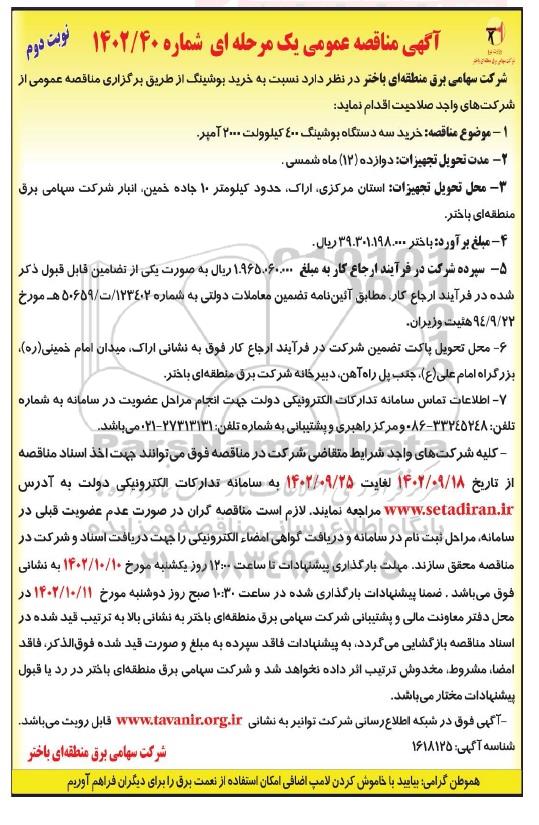 آگهی مناقصه عمومی یک مرحله ای شماره ۱۴۰۲/۴۰
نوبت دوم
وزارت نیرو
شرکت سهامی برق منطقه‌ای باختر
شرکت سهامی برق منطقه‌ای باختر در نظر دارد نسبت به خرید بوشینگ از طریق برگزاری مناقصه عمومی از
شرکت‌های واجد صلاحیت اقدام نماید:
۱- موضوع مناقصه: خرید سه دستگاه بوشینگ ۴۰۰ کیلوولت ۲۰۰۰ آمپر.
۲- مدت تحویل تجهیزات: دوازده (۱۲) ماه شمسی.
۳- محل تحویل تجهیزات: استان مرکزی، اراک، حدود کیلومتر ۱۰ جاده خمین، انبار شرکت سهامی برق
منطقه‌ای باختر.
۴- مبلغ برآورد: باختر ۳۹.۳۰۱.۱۹۸.۰۰۰ ریال.
۵- سپرده شرکت در فرآیند ارجاع کار به مبلغ ۱.۹۶۵.۰۶۰.۰۰۰ ریال به صورت یکی از تضامین قابل قبول ذکر
شده در فرآیند ارجاع کار، مطابق آئین‌نامه تضمین معاملات دولتی به شماره ۱۲۳۴۰۲/ت/۵۰۶۵۹ هـ مورخ
۹۴/۹/۲۲ هئیت وزیران.
۶- محل تحویل پاکت تضمین شرکت در فرآیند ارجاع کار فوق به نشانی اراک، میدان امام خمینی(ره)،
بزرگراه امام علی(ع)، جنب پل راه‌آهن، دبیرخانه شرکت برق منطقه‌ای باختر.
۷- اطلاعات تماس سامانه تدارکات الکترونیکی دولت جهت انجام مراحل عضویت در سامانه به شماره
تلفن: ۳۳۲۴۵۲۴۸-۰۸۶ و مرکز راهبری و پشتیبانی به شماره تلفن: ۲۷۳۱۳۱۳۱-۰۲۱ می‌باشد.
- کلیه شرکت‌های واجد شرایط متقاضی شرکت در مناقصه فوق می‌توانند جهت اخذ اسناد مناقصه
از تاریخ ۱۴۰۲/۰۹/۱۸ لغایت ۱۴۰۲/۰۹/۲۵ به سامانه تدارکات الکترونیکی دولت به آدرس
www.setadiran.ir مراجعه نمایند. لازم است مناقصه گران در صورت عدم عضویت قبلی در
سامانه، مراحل ثبت نام در سامانه و دریافت گواهی امضاء الکترونیکی را جهت دریافت اسناد و شرکت در
مناقصه محقق سازند. مهلت بارگذاری پیشنهادات تا ساعت ۱۲:۰۰ روز یکشنبه مورخ ۱۴۰۲/۱۰/۱۰ به نشانی
فوق می‌باشد. ضمنا پیشنهادات بارگذاری شده در ساعت ۱۰:۳۰ صبح روز دوشنبه مورخ ۱۴۰۲/۱۰/۱۱ در
محل دفتر معاونت مالی و پشتیبانی شرکت سهامی برق منطقه‌ای باختر به نشانی بالا به ترتیب قید شده در
اسناد مناقصه بازگشایی می‌گردد، به پیشنهادات فاقد سپرده به مبلغ و صورت قید شده فوق‌الذکر، فاقد
امضا، مشروط، مخدوش ترتیب اثر داده نخواهد شد و شرکت سهامی برق منطقه‌ای باختر در رد یا قبول
پیشنهادات مختار می‌باشد.
-آگهی فوق در شبکه اطلاع‌رسانی شرکت توانیر به نشانی www.tavanir.org.ir قابل رویت می‌باشد.
شناسه آگهی: ۱۶۱۸۱۲۵
شرکت سهامی برق منطقه‌ای باختر
هموطن گرامی: بیایید با خاموش کردن لامپ اضافی امکان استفاده از نعمت برق را برای دیگران فراهم آوریم
ParsNamadData
پایگاه اطلاع رسانی مناقصه و مزایده
۰۲۱-۸۸۳۴۹۶۷۰-۵